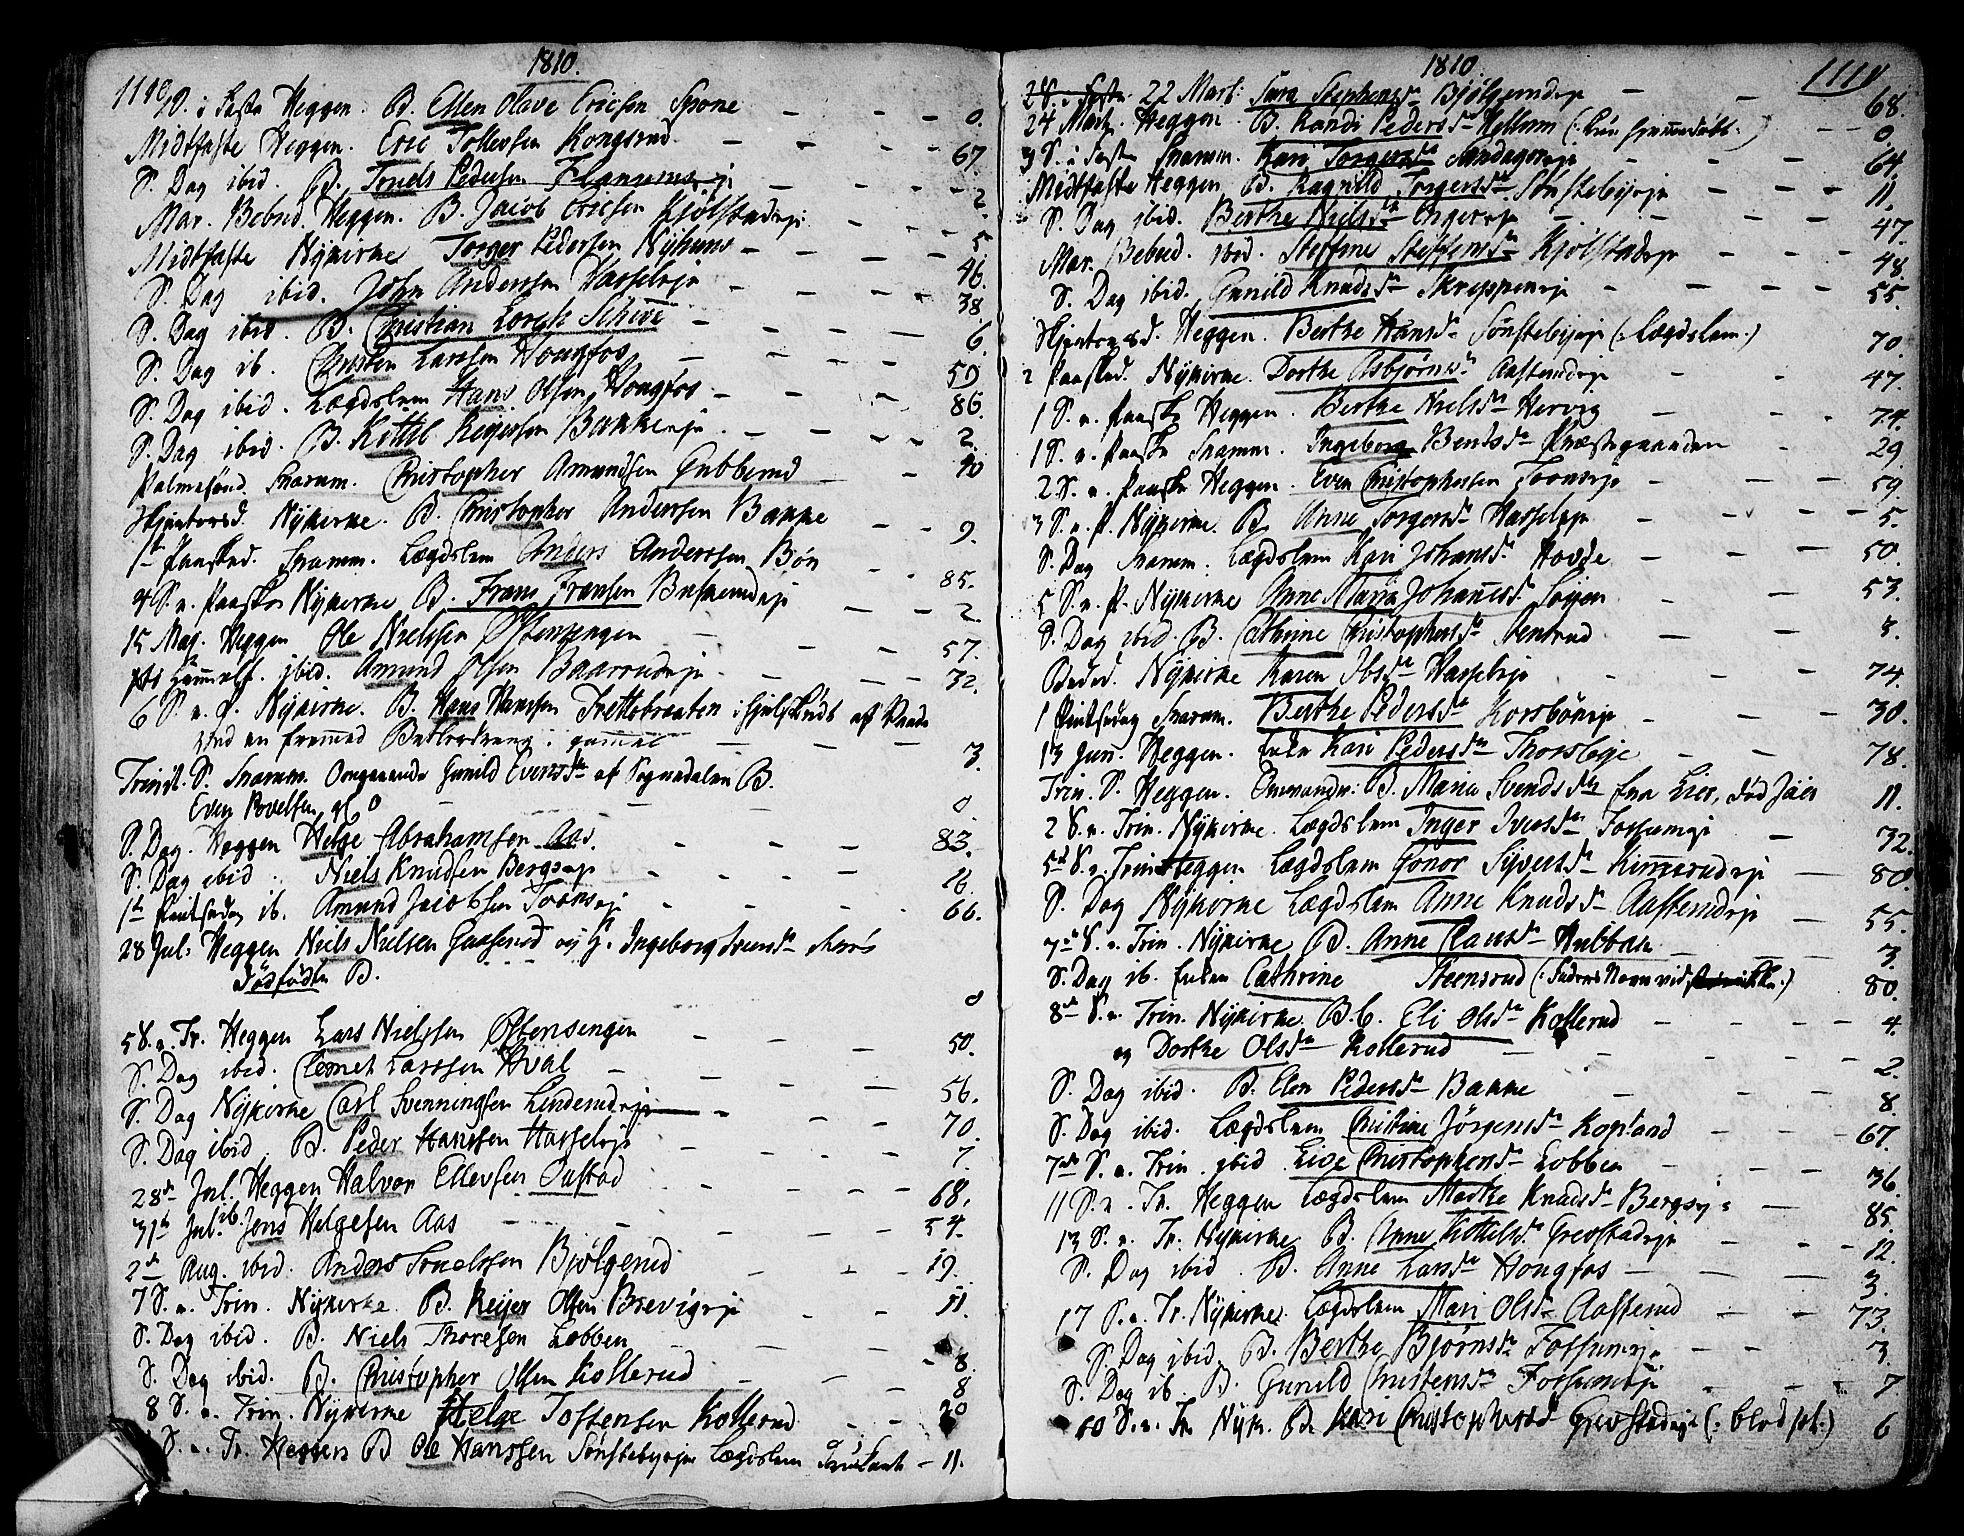 1110
1810.
S. i Faste Heggen. B. Ellen Olave Ericsen Spone - - - 0.
Midtfaste Heggen. Eric Tollevsen Kongsrud. - - - 67.
S. Dag ibid. B. Troels Pedersen - - - 2.
Mar. Bebud. Heggen. B. Jacob Ericsen Kjölstadeje - - - 5.
Midtfaste Nykirke Torger Pedersen Nyhuus - - - 46.
S. Dag ibid. John Anderssen Hasseleje - - - 38.
S. Dag ibid. B. Christian Lorch Schive - - - 6.
S. Dag ib. Christen Larssen Hougfos - - - 59.
S. Dag ibid. Lægdslem Hans Olsen Hougfos - - - 86.
S. Dag ibid. B. Kittil Reijersen Bakkeeje - - - 2.
Palmesönd. Snarum. Christopher Amundsen Gubberud - - 40
Skjertorsd. Nykirke. B. Christopher Anderssen Bakke - - 9.
1ste Paasked. Snarum. Lægdslem Anders Anderssen Bön - - 85.
4 S. e. Paaske Nykirke B. Frans Fransen Buskerudeje - - 2.
15 Maj. Heggen Ole Nielssen Östensengen - - - 57.
Xsti Himmelf. ibid. Amund Olsen Baarrudeje - - - 32.
6 S. e. P. Nykirke. B. Hans Hanssen Trettebraaten ihjelskudt af Vaade
ved en fremmed - gammel - - - 3.
Trinit. S. Snarum. Omgaaende Gunild Evensdr af Sognedalen B.
Even Povelsen gl. 0 - - - 0.
S. Dag. Heggen Helge Abrahamsen Aas. - - - 83.
S. Dag ibid. Niels Knudsen Bergseje - - - 16.
1ste Pintsedag ib. Amund Jacobsen Toenseje - - - 66.
28 Jul: Heggen Niels Nielsen Gaaserud og G. Ingeborg Svensdr
Dødfødte B. 0
5 S. e. Tr. Heggen Lars Nielssen Östensengen - - - 50.
S. Dag ibid. Clemet Larssen Hval - - - 56.
S. Dag Nykirke Carl Svenningsen Linderudeje - - - 70.
S. Dag ibid. B. Peder Hanssen Hasseleje - - - 7.
28de Jul. Heggen Halvor Ellevsen - - - 68.
31te Jul. ib. Jens Helgesen Aas - - - 54.
2de Aug. ibid. Anders Troelssen Bjölgerud - - - 19.
7 S. e. Trin. Nykirke. B. Reijer Olsen Brevigeje - - 11.
S. Dag ibid. B. Niels Thoresen Lobben - -
S. Dag ibid. B. Christopher Olsen Kollerud - - - 8.
8 S. e. Trin. Nykirke Helge Tostensen Kollerud - - 20
S. e. Tr. Heggen B Ole Hanssen Sönstebyeje Lægdslem - 11.
1810.
1111
22 Mart: Sara Stephensdr Bjölgerudeje - - 68.
24 Mart. Heggen. B. Randi Pedersdr Hellum - - 0.
3 S. i Faste Snarum. Kari Torgersdr - - - 64.
Midtfaste Heggen B. Ragnild Torgersdr Sönstebyeje - - - 11.
S. Dag ibid. Berthe Nielsdr - - - 47.
Mar. Bebud. ibid. Steffine Steffensdr Kjölstadeje - - - 48.
S. Dag ibid. Gunild Knudsdr Skreppeneje - - - 55.
Skjertorsd. Heggen. Berthe Hansdr Sönstebyeje (: Lægdslem :) 70.
2 Paasked. Nykirke. Dorthe Asbjörnsdr Aasterudeje - - 47.
1 S. e. Paaske Heggen. Berthe Nielsdr Hervig - - - 74.
1 S. e. Paaske Snarum. Ingeborg Bentsdr Præstegaarden - - 29.
2 S. e. Paaske Heggen. Even Christophersen Toenseje - - - 59.
3 S. e. P. Nykirke B. Anne Torgersdr Hasseleje - - - 5.
S. Dag Snarum. Lægdslem Kari Johansdr Hovde - - - 50.
5 S. e. P. Nykirke Anne Maria Johannesdr - - 53.
S. Dag ibid. B. Cathrine Christophersdr Stensrud - - 3.
Beded. Nykirke Karen Ibsdr Hasseleje - - - 74.
1 Pintsedag Snarum. Berthe Pedersdr Korsböneje - - - 30.
13 Jun. Heggen. Enke Kari Pedersdr Thorsbyeje - - 78.
Trin. S. Heggen. Omvandr. B. Maria Svendsdr fra Lier, 11.
2 S. e. Trin. Nykirke. Lægdslem Inger Iversdr Fossumeje - 32.
5te S. e. Trin Heggen Lægdslem Gonor Syversdr Kimerudeje - 80.
S. Dag Nykirke Lægdslem Anne Knudsdr Aasterudeje - 55.
7de S. e. Trin. Nykirke B. Anne Clausdr Hulbak - - - 3.
S. Dag ib. Enken Cathrine Steensrud (: Faders Navn vides ikke :) 80.
8de S. e. Trin. Nykirke. B. b. Eli Olsdr Kollerud - - - 4.
og Dorthe Olsdr Kollerud - - - 2.
S. Dag ibid. B. Elen Pedersdr Bakke - - - 8.
S. Dag ibid. Lægdslem Christine Jörgensdr Kopland - - - 67.
7de S. e. Trin. ibid. Live Christophersdr Lobben - - - 36.
11 S. e. Tr. Heggen Lægdslem Marthe Knudsdr Bergseje - - 85.
13 S. e. Tr. Nykirke B. Anne Kittelsdr Grevstadeje - - - 12.
S. Dag ibid. B. Anne Larsdr Hougfos - - - 3.
17 S. e. Tr. Nykirke. Lægdslem Mari Olsdr Aasterud - - 73.
S. Dag ibid. B. Berthe Bjørnsdr Fossumeje - - - 3.
S. Dag ib. B. Gunild Christensdr Fossumeje - - - 7
S. e. Tr. Nyk. B. Kari Christophersdr Grevstadeje (: Blodsot :) 6